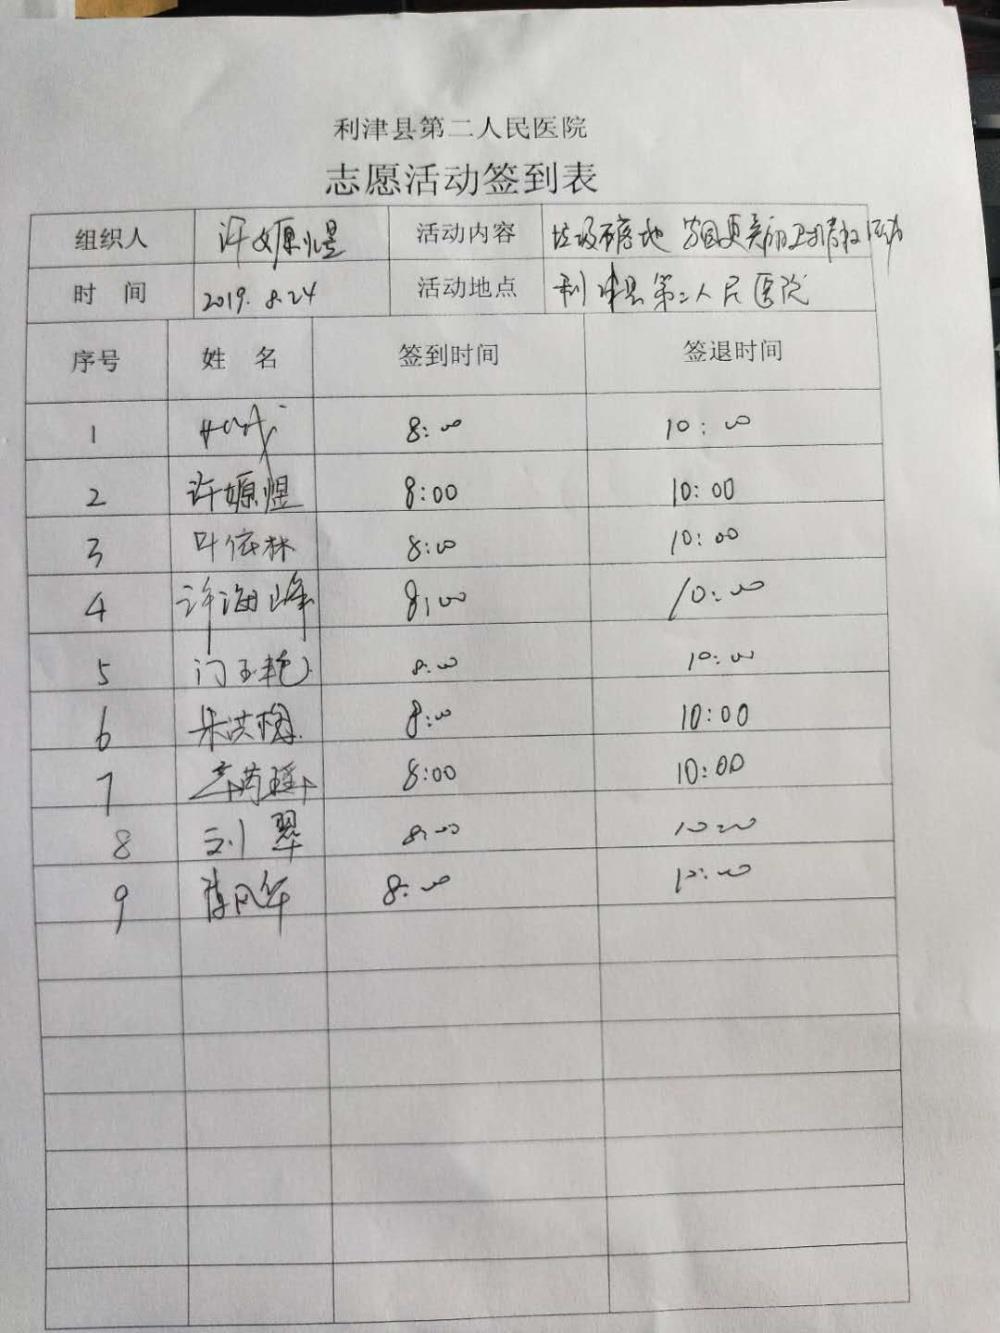 利津县第二人民医院
志愿活动签到表
组织人 许嫄煜 活动内容 垃圾不落地 家园更美丽卫生清洁活动
时 间 2019.8.24 活动地点 利津县第二人民医院
序号 姓 名 签到时间 签退时间
1 8:00 10:00
2 许嫄煜 8:00 10:00
3 叶依林 8:00 10:00
4 许海峰 8:00 10:00
5 门玉艳 8:00 10:00
6 朱洪梅 8:00 10:00
7 8:00 10:00
8 刘翠 8:00 10:00
9 8:00 10:00